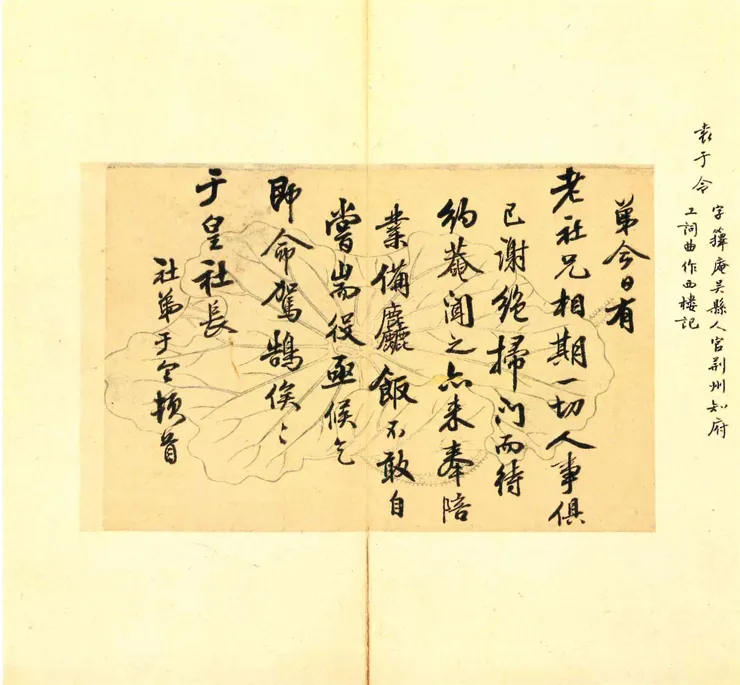 袁于令
字籜庵吳縣人官荊州知府
工詞曲作西樓記
弟今日有
老社兄相期一切人事俱
已謝絕掃門而待
約菴聞之亦来奉陪
業備麤飯不敢自
嘗耑役亟候乞
即命駕鵠俟〻
于皇社長
社弟于令頓首